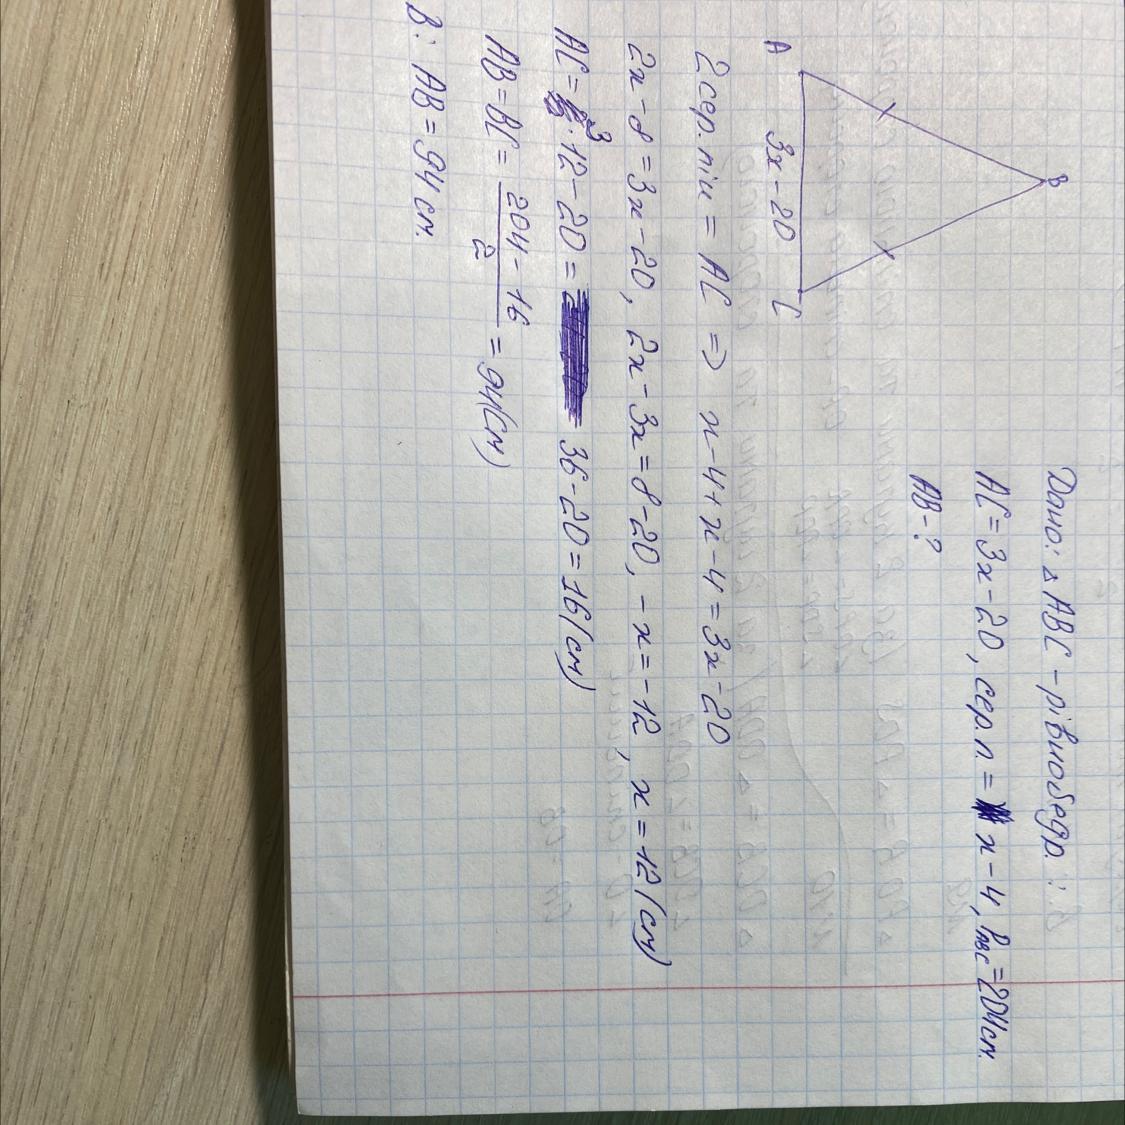 B
A
C
3x-20
Дано: △ABC - рівнобедр.
AC = 3x-20, сер.л = x-4, P_ABC = 204 см.
AB - ?
2 сер. ліи = AC => x-4+x-4=3x-20
2x-8=3x-20, 2x-3x=8-20, -x=-12, x=12(см)
AC = 3·12-20= = 36-20=16(см)
AB=BC= 204-16 / 2 = 94(см)
В: AB = 94 см.